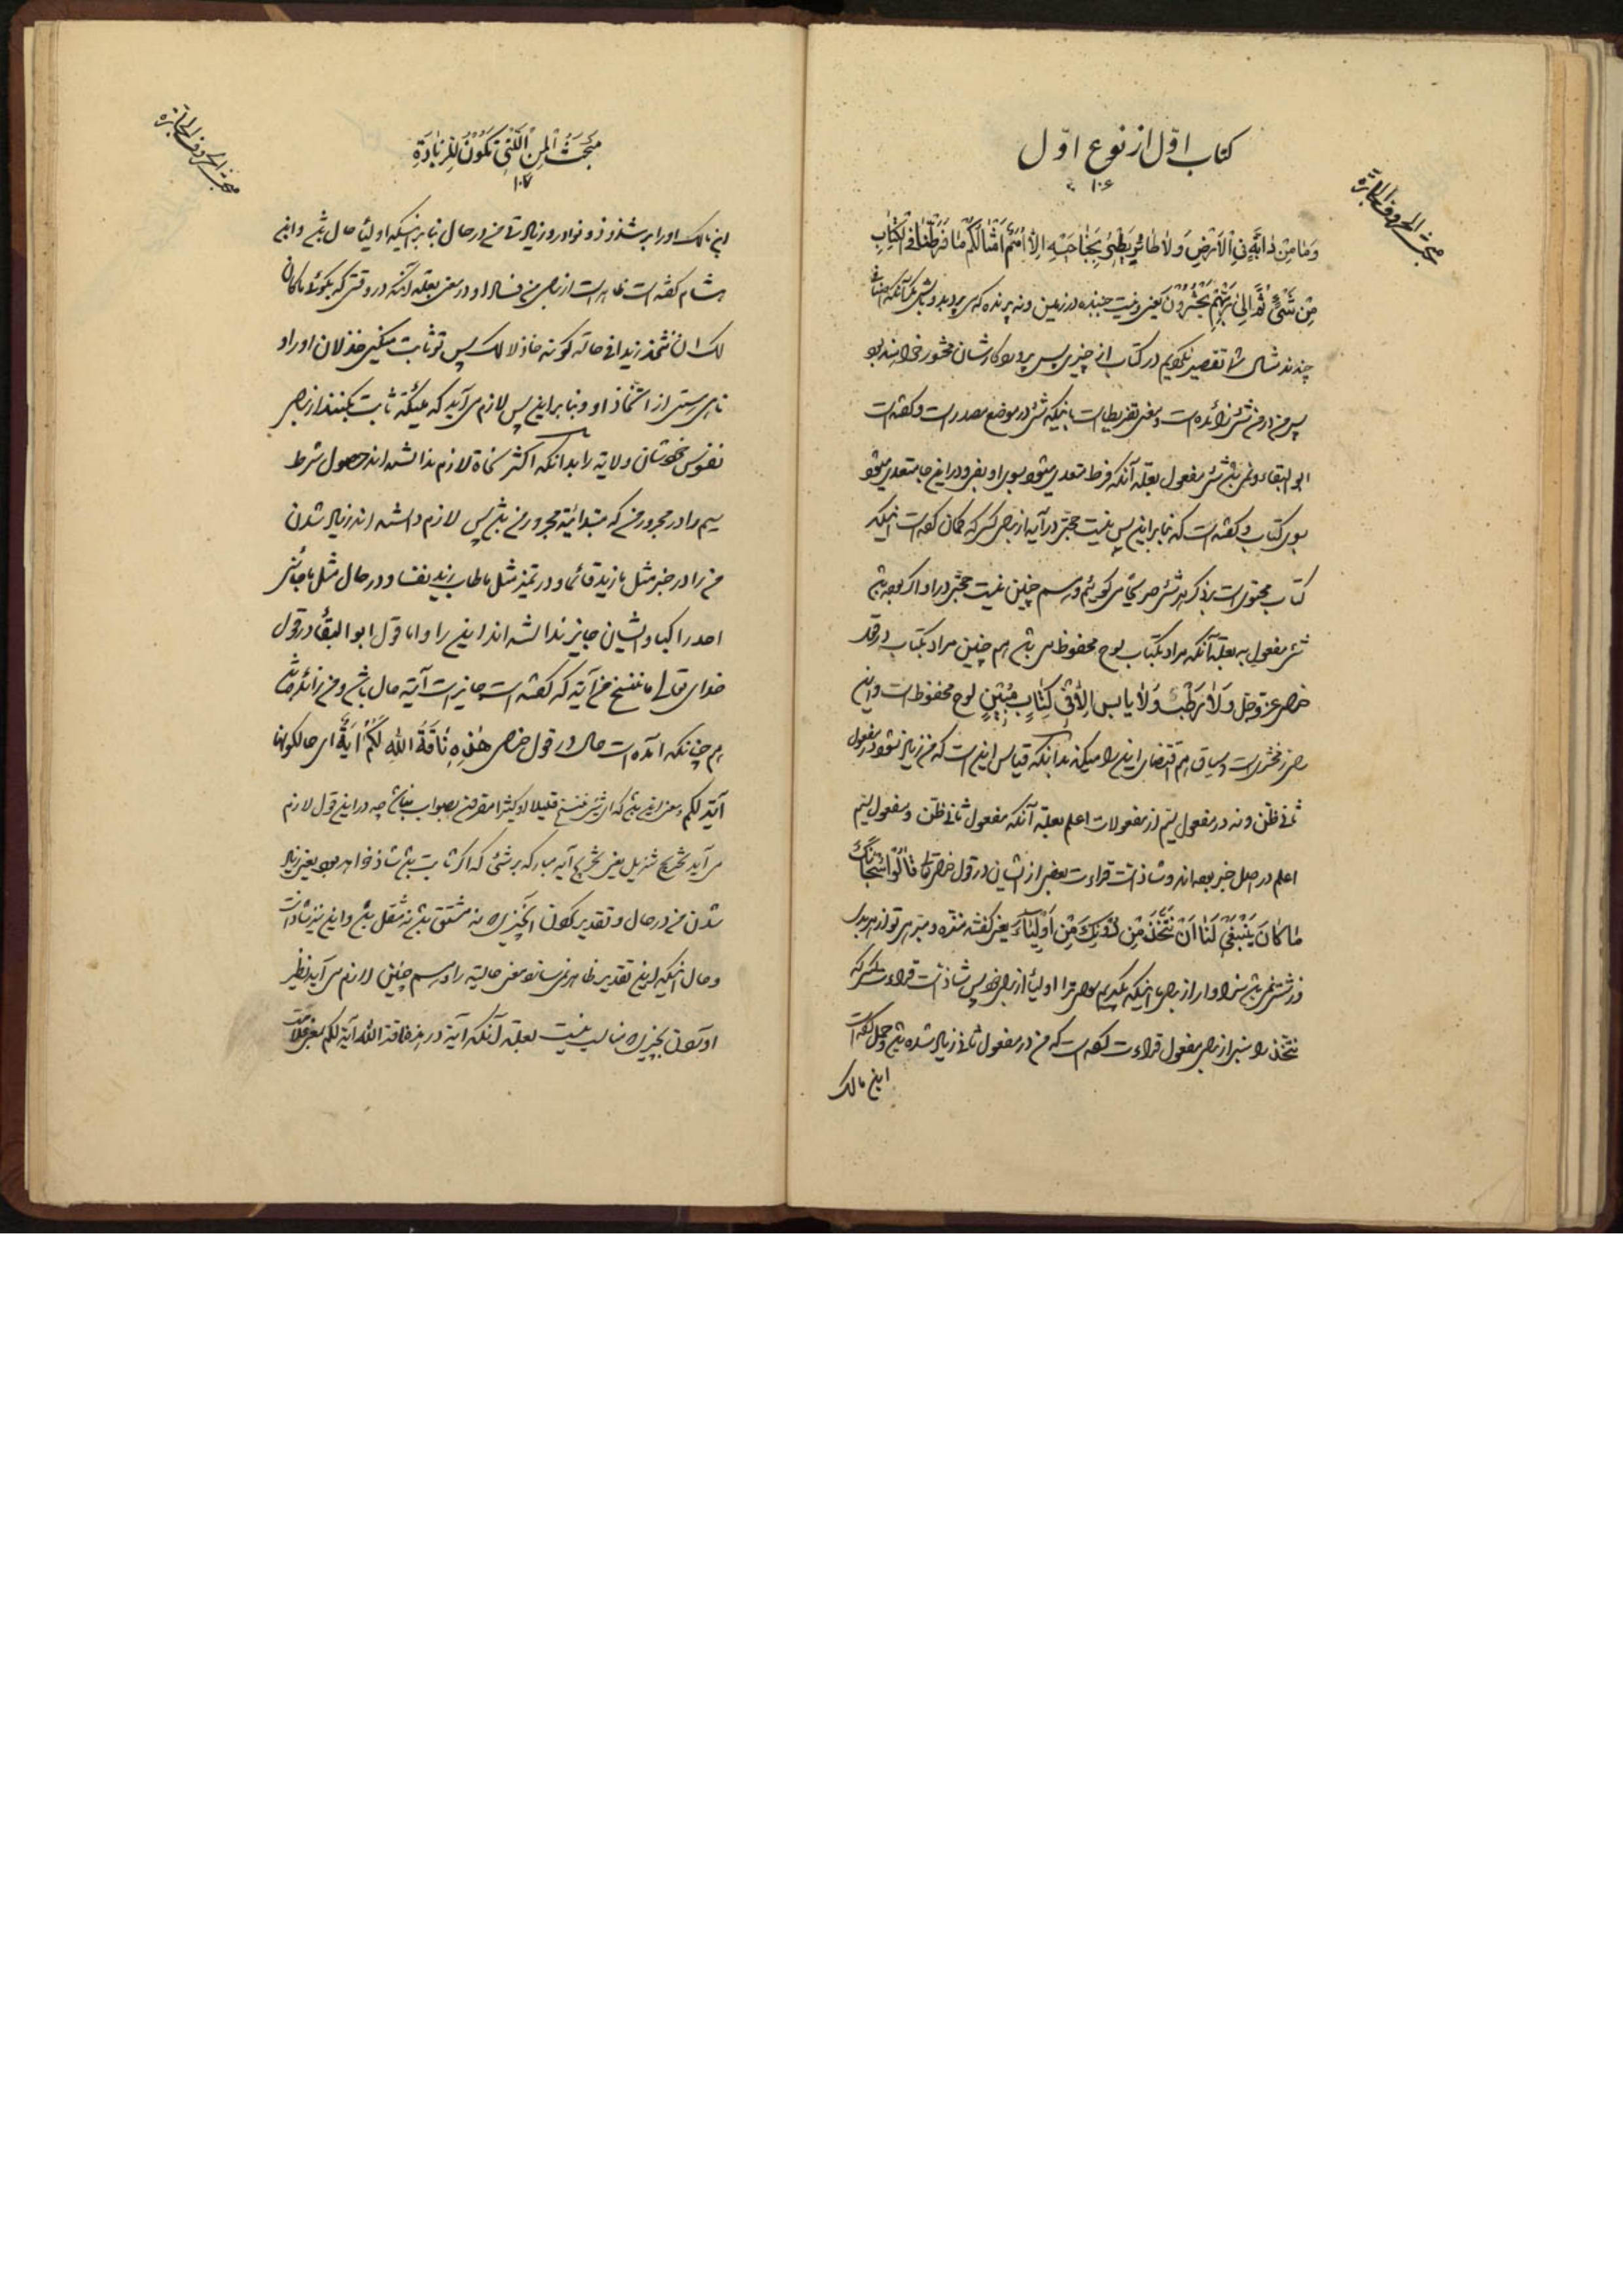 کتاب اوّل از نوع اوّل
۱۰۶
مبحث الحروف الجارّة
وَمَا مِنْ دَابَّةٍ فِی الْاَرْضِ وَلَا طَائِرٍ یَطِیْرُ بِجَنَاحَیْهِ اِلَّا اُمَمٌ اَمْثَالُکُمْ مَا فَرَّطْنَا فِی الْکِتَابِ
مِنْ شَیْءٍ ثُمَّ اِلٰی رَبِّهِمْ یُحْشَرُوْنَ یعنی و نیست جنبنده در زمین و نه پرنده که
چندند مثال شما تقصیر نکردیم در کتاب از چیزی پس بپروردکارشان محشور خواهند بود
پس من در من شئ زائده است و بمعنی تفریط است بانیکه شئ در موضع مصدر است و کفته است
ابو البقاء و نمی باشد شئ مفعول به بعلة آنکه فرط متعدی میشود بسوی او بفی و در این جا متعدی میشود
بسوی کتاب و کفته است که بنا بر این پس نیست حجتی در آیه از برای کسی که کمان کرده است اینکه
کتاب محتوی است بر ذکر هر شئ صریحا می کوییم و هم چنین نیست حجتی در او اکر بوده باشد
شئ مفعول به بعلة آنکه مراد بکتاب لوح محفوظ می باشد هم چنین مراد بکتاب در قول
خدای عزّ و جل وَلَا رَطْبٍ وَلَا یَابِسٍ اِلَّا فِیْ کِتَابٍ مُبِیْنٍ لوح محفوظ است و این
رای زمخشری است و سیاق هم اقتضای این را میکند بدانکه قیاس این است که من زیاد نشود در مفعول
ثانی ظن و نه در مفعول سیّم از مفعولات اعلم بعلة آنکه مفعول ثانی ظن و مفعول سیّم
اعلم در اصل خبر بوده اند و شاذ است قراءت بعضی از ایشان در قول خدای تعالی قَالُوْا سُبْحَانَکَ
مَا کَانَ یَنْبَغِیْ لَنَا اَنْ نُتَّخَذَ مِنْ دُوْنِکَ مِنْ اَوْلِیَاءَ یعنی کفتند منزه و مبرّائی تو از هر بدی
و زشتی نمی باشد سزاوار از برای ما اینکه بکیریم سوای ترا اولیاء از برای خود پس شاذ است قراءت کسی که
نتخذ را مبنی از برای مفعول قراءت کرده است که من در مفعول ثانی زیاد شده باشد و حمل کرده است
ابن مالک
مَبْحَثُ الْمِنْ الَّتِیْ تَکُوْنُ لِلزِّیَادَةِ
۱۰۷
مبحث الحروف الجارّة
ابن مالک او را بر شذوذ و نوادر و زیادتی من در حال بنا بر اینکه اولیاء حال باشد و ابن
هشام کفته است ظاهر است از برای من فساد او در معنی بعلة آنکه در وقتی که بکوئی ما کان
لک ان تتخذ زیدا فی حالة کونه خاذلا لک پس تو ثابت میکنی خذلان او را و
ناهی هستی از اتخاذ او و بنا بر این پس لازم می آید که ملئکة ثابت بکنند از برای
نفوس خودشان ولایة را بدانکه اکثر نحاة لازم ندانسته اند حصول شرط
سیم را در مجرور من که مبتدائیة مجرور من باشد پس لازم دانسته اند زیاد شدن
من را در خبر مثل ما زید قائما و در تمیز مثل ما طاب زید نفسا و در حال مثل ما جائنی
احد راکبا و ایشان جایز ندانسته اند این را و اما قول ابو البقاء در قول
خدای تعالی ما ننسخ من آیة که کفته است جایز است آیة حال باشد و من زائده باشد
هم چنانکه آمده است حال در قول خدای هٰذِهِ نَاقَةُ اللهِ لَکُمْ اٰیَةً ای حالکونها
آیة لکم و معنی این باشد که ای شئ ننسخ قلیلا او کثیرا مقرون بصواب نباشد چه در این قول لازم
می آید تخریج تنزیل یعنی تخریج آیه مبارکه بر شئ که اکر ثابت باشد شاذ خواهد بود یعنی زیاد
شدن من در حال و تقدیر کردن آنچیزی که نه مشتق باشد نه منتقل باشد و این نیز شاذ است
و حال اینکه این تقدیر ظاهر نمی سازد معنی حالیة را و هم چنین لازم می آید تنظیر
او کردن بچیزی که مناسب نیست بعلة آنکه آیة در هذه ناقة الله آیة لکم بمعنی علامت